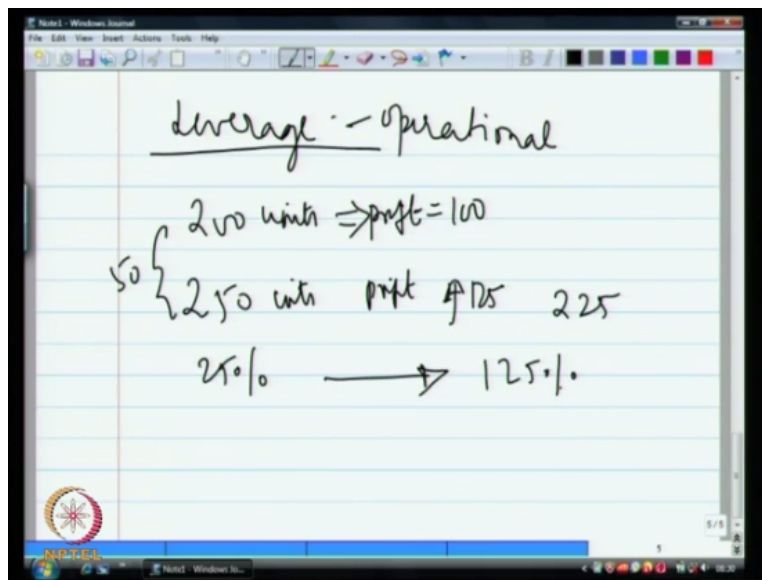 Note1 - Windows Journal
File Edit View Insert Actions Tools Help
Leverage - operational
200 units ⇒ profit = 100
50
250 units profit ↑ 125 225
25% → 125%
5/5
5
NPTEL
Note1 - Windows Jo...
08:20